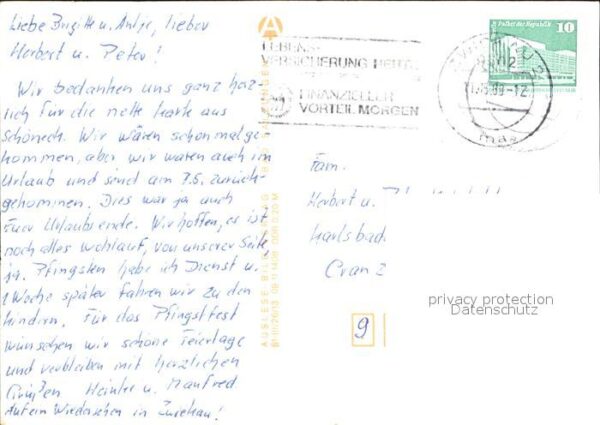 Liebe Brigitte u. Antje, lieber
Herbert u. Peter!
Wir bedanken uns ganz herz-
lich für die nette Karte aus
Schöneck. Wir wären schon mal ge-
kommen, aber wir waren auch im
Urlaub und sind am 7.5. zurück-
gekommen. Dies war ja auch
Euer Urlaubsende. Wir hoffen, es ist
noch alles wohlauf, von unserer Seite
ja. Pfingsten habe ich Dienst u.
1 Woche später fahren wir zu den
Kindern. Für das Pfingstfest
wünschen wir schöne Feiertage
und verbleiben mit herzlichen
Grüßen Heinke u. Manfred
Auf ein Wiedersehen in Zwickau!
A
AUSLESE BILD
LEBENS-
VERSICHERUNG HEUTE
FINANZIELLER
VORTEIL MORGEN
Palast der Republik 10
DDR
Fam.
Herbert u.
Karlsbad
Cranz
9
privacy protection
Datenschutz